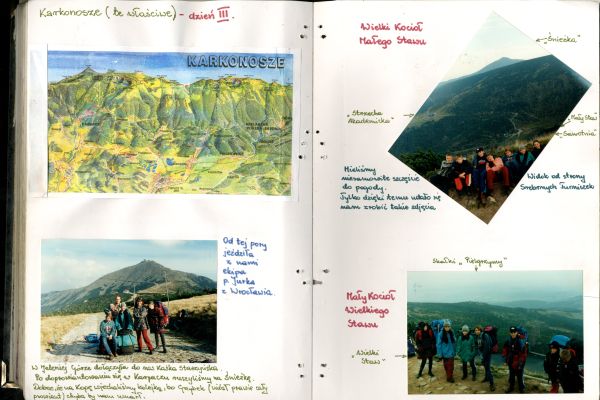 Karkonosze (te właściwe) - dzień III.
KARKONOSZE
Od tej pory
jeździła
z nami
ekipa
p. Jurka
z Wrocławia.
W Jeleniej Górze dołączyła do nas Kaśka Starzyńska.
Po doprowiantowaniu się w Karpaczu ruszyliśmy na Śnieżkę.
Dobrze, że na Kopę wjechaliśmy kolejką, bo Grzybek (wziął prawie cały
prowiant) chyba by nam umarł.
Wielki Kocioł
Małego Stawu
"Śnieżka"
"Strzecha
Akademicka"
"Mały Staw"
"Samotnia"
Mieliśmy
niesamowite szczęście
do pogody.
Tylko dzięki temu udało się
nam zrobić takie zdjęcia.
Widok od strony
Srebrnych Turniczek
Skałki "Pielgrzymy"
Mały Kocioł
Wielkiego
Stawu
"Wielki
Staw"